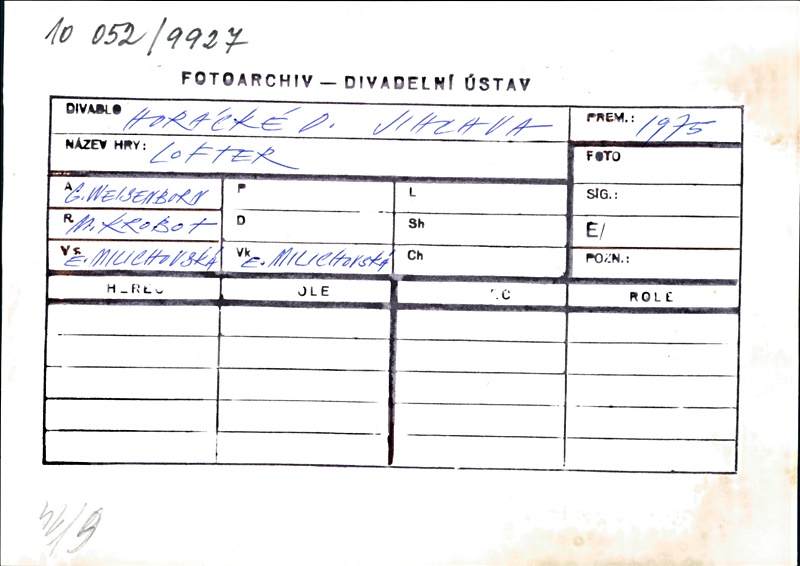 10 052/9927
FOTOARCHIV — DIVADELNÍ ÚSTAV
DIVADLO HORÁCKÉ D. JIHLAVA PREM.: 1975
NÁZEV HRY: LOFTER FOTO
A G. WEISENBORN P L SIG.:
R M. KROBOT D Sh E/
Vs E. MILICHOVSKÁ Vk E. MILICHOVSKÁ Ch POZN.:
HEREC OLE EC ROLE